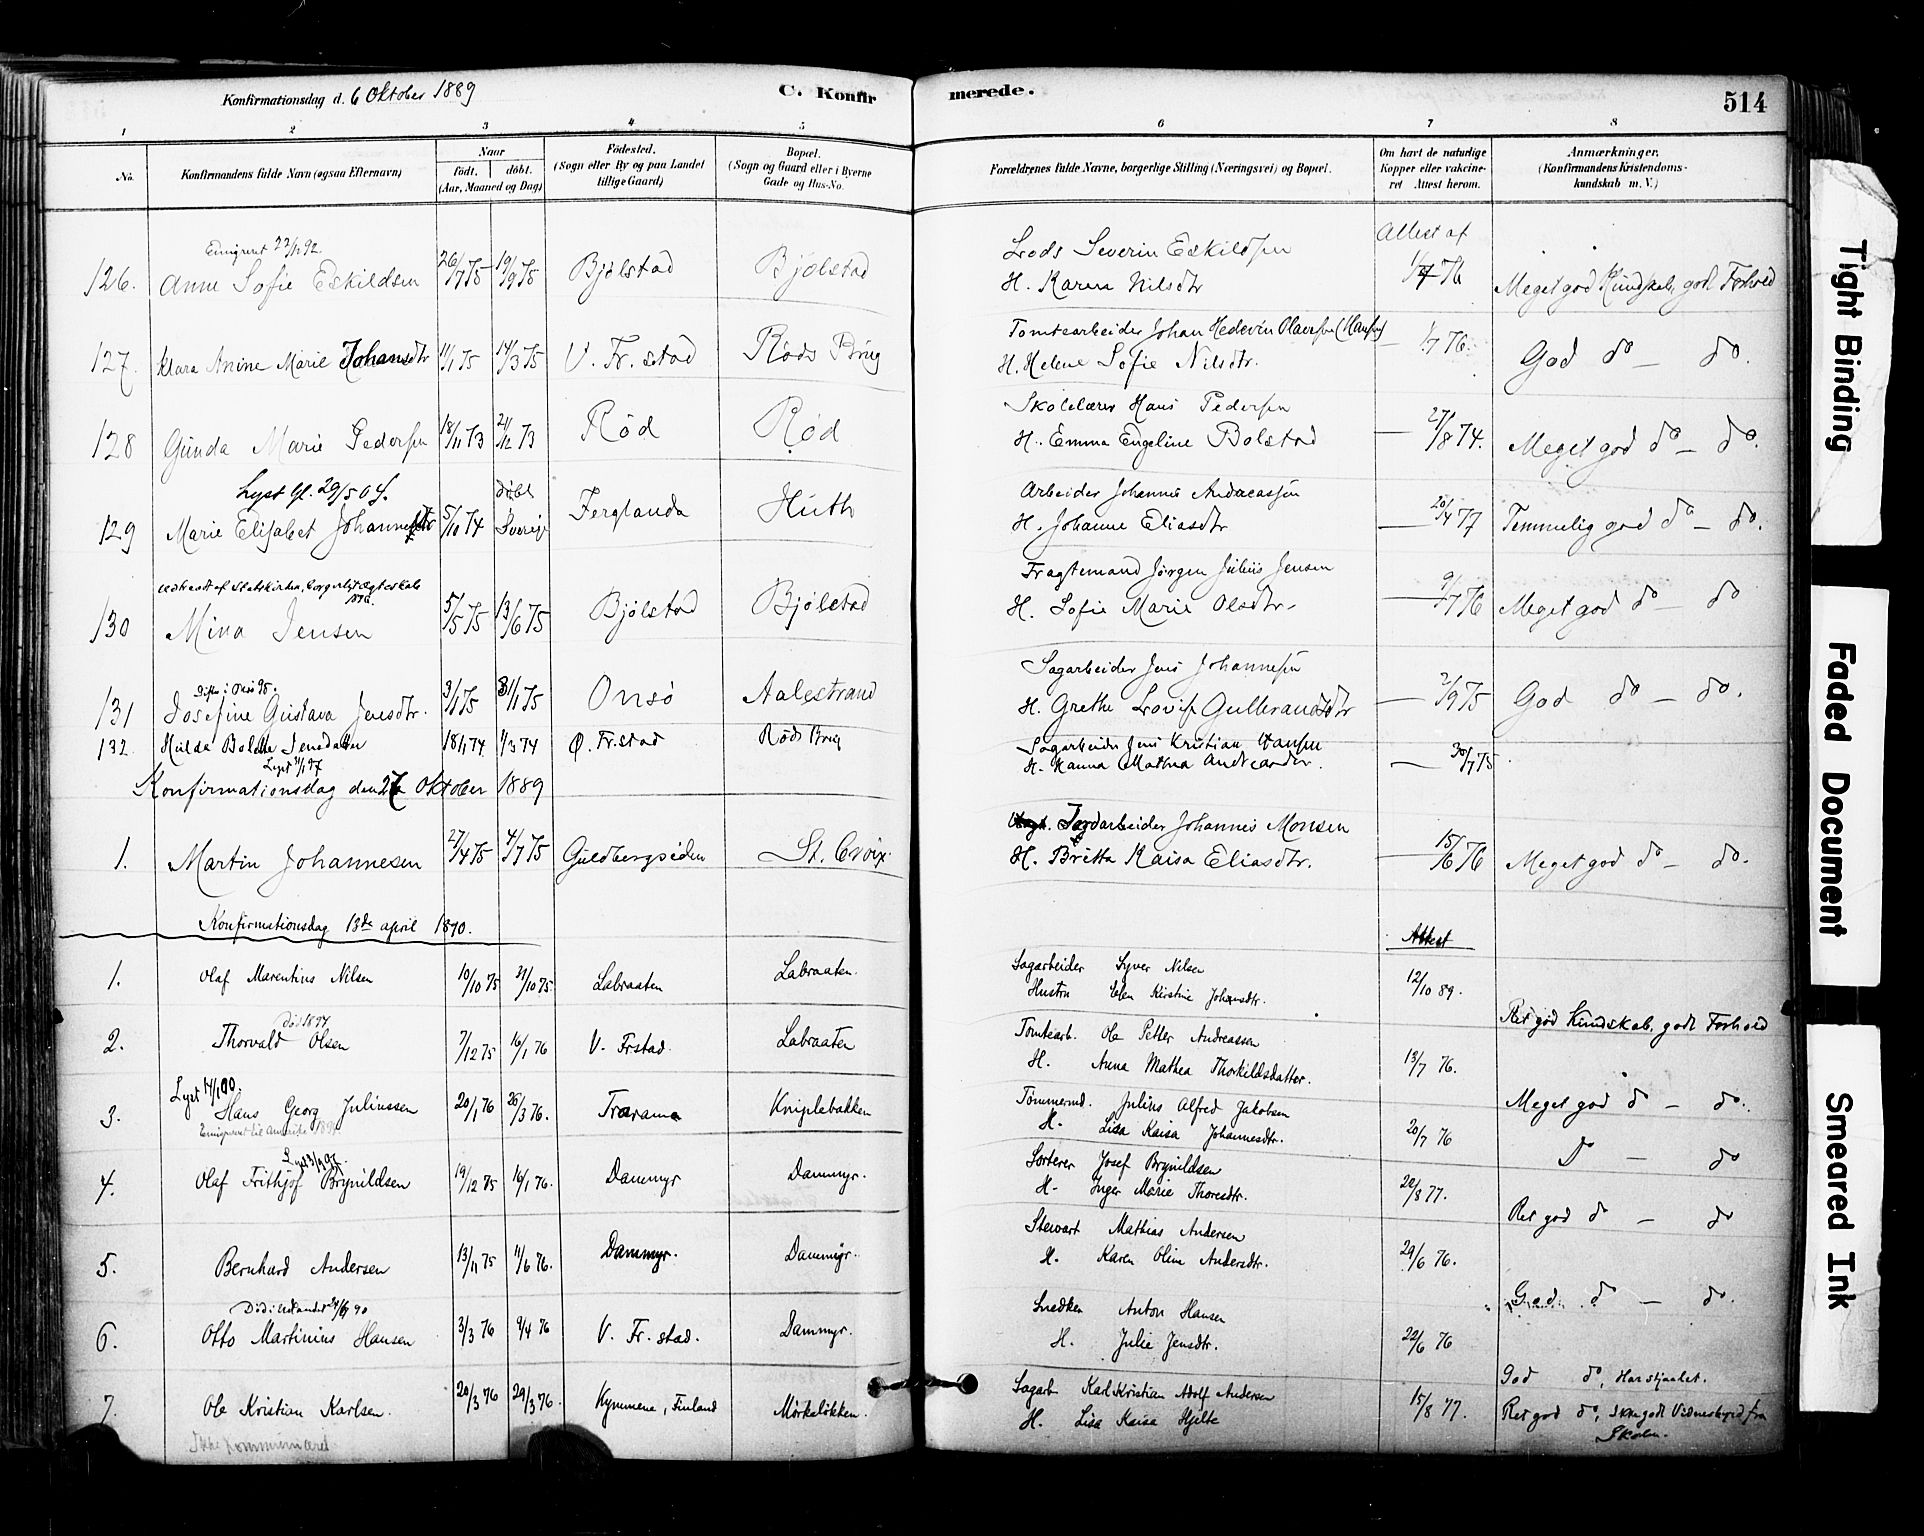 Konfirmationsdag d. 6 Oktober 1889
C. Konfirmerede.
514
1 2 3 4 5 6 7 8
No.
Konfirmandens fulde Navn (ogsaa Efternavn)
Naar
födt. döbt.
(Aar, Maaned og Dag)
Födested.
(Sogn eller By og paa Landet
tillige Gaard)
Bopæl.
(Sogn og Gaard eller i Byerne
Gade og Hus-No.
Forældrenes fulde Navne, borgerlige Stilling (Næringsvei) og Bopæl.
Om havt de naturlige
Kopper eller vakcine-
ret Attest herom.
Anmærkninger.
(Konfirmandens Kristendoms-
kundskab m. V.)
Emigreret 22/11 92.
Attest af
126. Anne Sofie Eskildsen 26/7 75 19/9 75 Bjölstad Bjölstad
Lods Severin Eskildsen
H. Karen Nilsdtr 1/7 76 Meget god Kundskab, godt Forhold
127. Klara Anine Marie Johansdtr 11/1 75 14/3 75 V. Fr. stad Röds Brug
Tomtearbeider Johan Hedevin Olavsen (Hansen)
H. Helene Sofie Nilsdtr. — 1/7 76. God do — do.
128 Gunda Marie Pedersen 18/11 73 21/12 73 Röd Röd
Skolelærer Hans Pedersen
H. Emma Engeline Bolstad — 27/8 74. Meget god do — do.
Lyst Gl. 29/5 04.
döbt
129 Marie Elisabet Johannesdtr 5/10 74 Sverige Ferglanda Huth
Arbeider Johannes Andreassen
H. Johanne Eliasdtr — 20/4 77 Temmelig god do — do.
udtraadt af Statskirken, borgerligt ægteskab
130 Mina Jensen 5/5 75 13/6 75 Bjölstad Bjölstad
Fragtemand Jörgen Julius Jensen
H. Sofie Marie Olsdtr. — 9/7 76 Meget god do — do
Gift i Onsö 95.
131 Josefine Gustava Jensdtr. 3/1 75 31/1 75 Onsö Aalestrand
Sagarbeider Jens Johannesen
H. Grethe Lovise Gulbrandsdtr — 2/9 75 God do — do.
132. Hulda Bolette Jensdatter 18/1 74 1/3 74 Ø. Fr.stad Röds Brug
Sagarbeider Jens Kristian Hansen
H. Hanna Mathea Andreasdtr. — 30/7 75
Lyst 31/1 97
Konfirmationsdag den 27 Oktober 1889
1. Martin Johannesen 27/4 75 4/7 75 Guldbergsiden St. Croix
Jordarbeider Johannes Monsen
H. Britta Kaisa Eliasdtr. — 15/6 76 Meget god do — do.
Konfirmationsdag 13de april 1890.
Attest
1. Olaf Marentius Nilsen 10/10 75 31/10 75. Labraaten Labraaten.
Sagarbeider Syver Nilsen
Hustru Elen Kirstine Johansdtr. 12/10 89.
Ret god Kundskab, godt Forhold
Död 1894
2. Thorvald Olsen 7/12 75 16/1 76 V. Frstad. Labraaten
Tomtearb. Ole Petter Andreassen
H. Anna Mathea Thorkildsdatter. 13/7 76.
Meget god do — do.
Lyst 14/1 00.
3. Hans Georg Juliussen 20/1 76 26/3 76. Trarama Kniplebakken
Emigreret til Amerika 189
Tömmermd. Julius Alfred Jakobsen
H. Lisa Kaisa Johannesdtr. 20/7 76
Do — do
4. Olaf Frithjof Brynildsen 19/12 75 16/1 76. Dammyr Dammyr.
Sorterer Josef Brynildsen
H. Inger Marie Thoresdtr. 22/8 77.
Ret god do — do
5. Bernhard Andersen 13/11 75 11/6 76. Dammyr. Dammyr.
Stewart Mathias Andersen
H. Karen Oline Andersdtr. 29/6 76.
God do — do.
Död i Udlandet 24/9 90
6. Otto Martinius Hansen 3/3 76 9/4 76 V. Fr. stad. Dammyr.
Snedker Anton Hansen
H. Julie Jensdtr. 22/6 76
God do, Har stjaalet.
7. Ole Kristian Karlsen. 20/3 76 29/3 76. Kymmene, Finland Mörkelökken.
Sagarb Karl Kristian Adolf Andersen
H. Lisa Kaisa Hjelte 15/8 77. Ret god do, Ikke godt Vidnesbyrd fra
Skolen.
Ikke
Tight Binding
Faded Document
Smeared Ink